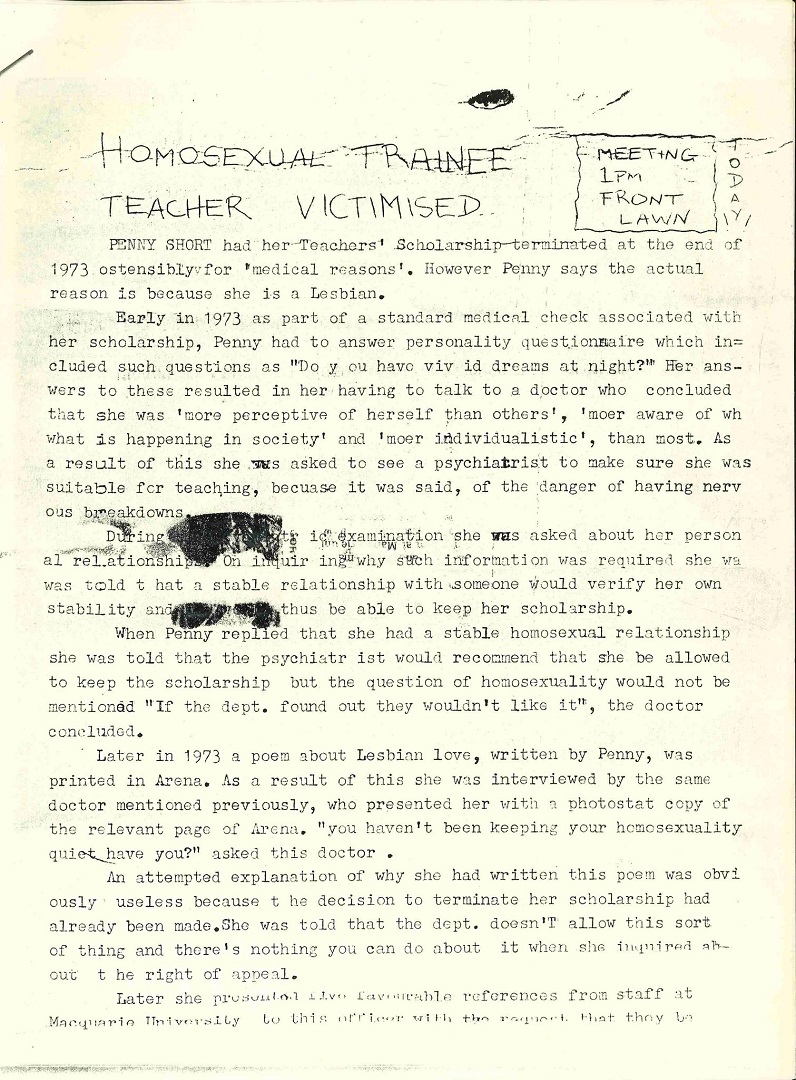 HOMOSEXUAL TRAINEE
TEACHER VICTIMISED.
MEETING
1PM
FRONT
LAWN
TODAY!
PENNY SHORT had her Teachers' Scholarship terminated at the end of
1973 ostensibly for 'medical reasons'. However Penny says the actual
reason is because she is a Lesbian.
Early in 1973 as part of a standard medical check associated with
her scholarship, Penny had to answer personality questionnaire which in=
cluded such questions as "Do y ou have viv id dreams at night?" Her ans-
wers to these resulted in her having to talk to a doctor who concluded
that she was 'more perceptive of herself than others', 'moer aware of wh
what is happening in society' and 'moer individualistic', than most. As
a result of this she was asked to see a psychiatrist to make sure she was
suitable for teaching, becuase it was said, of the danger of having nerv
ous breakdowns.
During ic examination she was asked about her person
al relationships. On inquir ing why such information was required she wa
was told t hat a stable relationship with someone would verify her own
stability and thus be able to keep her scholarship.
When Penny replied that she had a stable homosexual relationship
she was told that the psychiatr ist would recommend that she be allowed
to keep the scholarship but the question of homosexuality would not be
mentioned "If the dept. found out they wouldn't like it", the doctor
concluded.
Later in 1973 a poem about Lesbian love, written by Penny, was
printed in Arena. As a result of this she was interviewed by the same
doctor mentioned previously, who presented her with a photostat copy of
the relevant page of Arena. "you haven't been keeping your homosexuality
quiet have you?" asked this doctor .
An attempted explanation of why she had written this poem was obvi
ously useless because t he decision to terminate her scholarship had
already been made.She was told that the dept. doesn'T allow this sort
of thing and there's nothing you can do about it when she inquired ab-
out t he right of appeal.
Later she presented five favourable references from staff at
Macquarie University to this officer with the request that they be